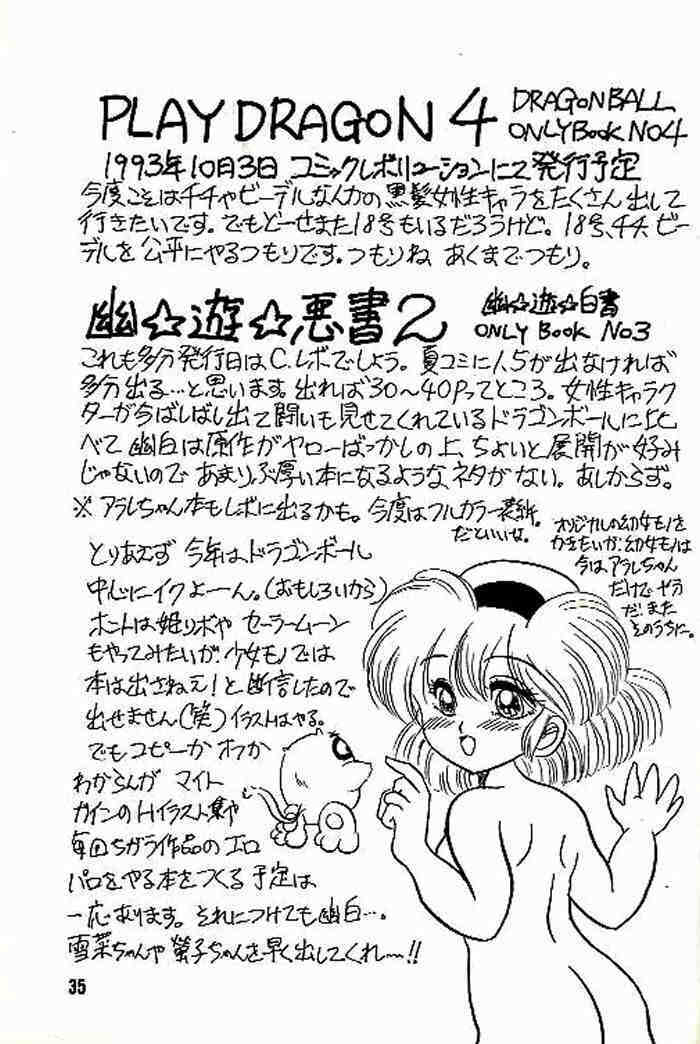 PLAY DRAGON 4
DRAGON BALL
ONLY Book NO4
1993年10月3日 コミックレボリューションにて発行予定
今度こそはチチやビーデルなんかの黒髪女性キャラをたくさん出して
行きたいです。でもどーせまた18号もいるだろうけど。18号、チチ、ビー
デルを公平にやるつもりです。つもりね あくまでつもり。
幽☆遊☆悪書2
幽☆遊☆白書
ONLY Book No3
これも多分発行日はC.レボでしょう。夏コミに1.5が出なければ
多分出る…と思います。出れば30〜40Pってところ。女性キャラク
ターが今ばしばし出て闘いも見せてくれているドラゴンボールにく
べて幽白は原作がヤローばっかしの上、ちょいと展開が好み
じゃないので あまりぶ厚い本になるようなネタがない。あしからず。
※ アラレちゃん本もレボに出るかも。今度はフルカラー表紙
だといいな。
オリジナルの幼女モノを
かきたいが、幼女モノは
今はアラレちゃん
だけでやろう
だ!また
そのうちに。
とりあえず 今年は、ドラゴンボール
中心にイクよーん。(おもしろいから)
ホントは姫リボや セーラームーン
もやってみたいが、少女モノでは
本は出さねえ!と断言したので
出せません(笑)イラストはやる。
でもコピーか オフか
わからんが マイト
ガインのHイラスト集や
毎回ちがう作品のエロ
パロをやる本をつくる予定は
一応あります。それにつけても幽白…。
雪菜ちゃんや螢子ちゃんを早く出してくれ〜!!
35